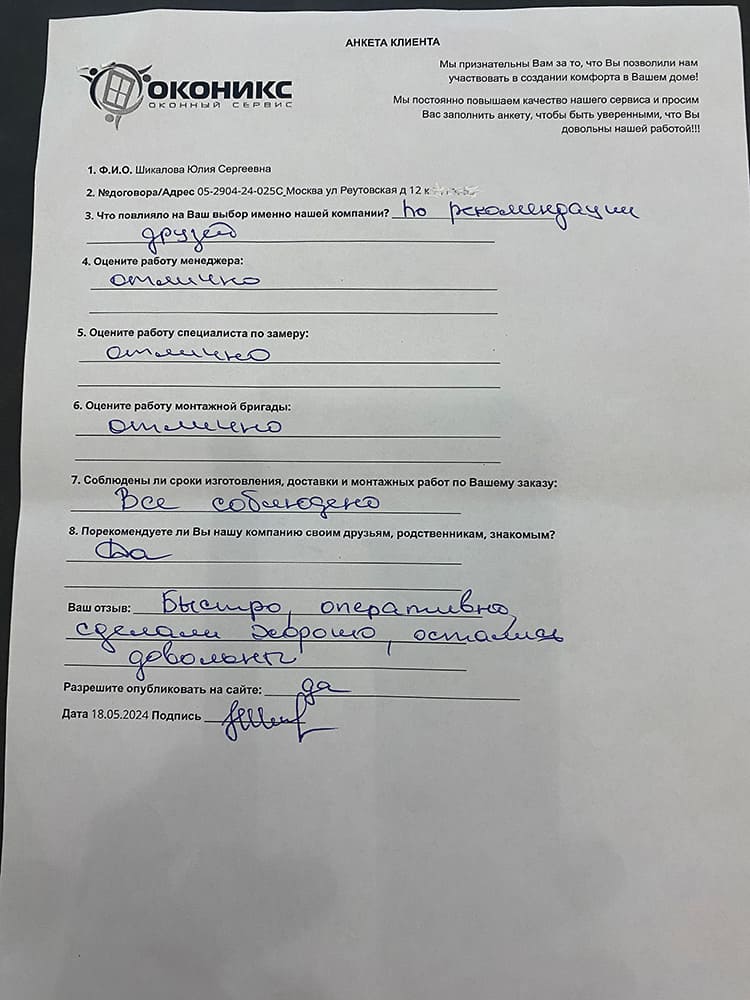 АНКЕТА КЛИЕНТА
ОКОНИКС
ОКОННЫЙ СЕРВИС
Мы признательны Вам за то, что Вы позволили нам
участвовать в создании комфорта в Вашем доме!
Мы постоянно повышаем качество нашего сервиса и просим
Вас заполнить анкету, чтобы быть уверенными, что Вы
довольны нашей работой!!!
1. Ф.И.О. Шикалова Юлия Сергеевна
2. №договора/Адрес 05-2904-24-025С_Москва ул Реутовская д 12 к
3. Что повлияло на Ваш выбор именно нашей компании? По рекомендации
друзей
4. Оцените работу менеджера:
отлично
5. Оцените работу специалиста по замеру:
отлично
6. Оцените работу монтажной бригады:
отлично
7. Соблюдены ли сроки изготовления, доставки и монтажных работ по Вашему заказу:
Все соблюдено
8. Порекомендуете ли Вы нашу компанию своим друзьям, родственникам, знакомым?
Да
Ваш отзыв: Быстро, оперативно,
сделали хорошо, остались
довольны
Разрешите опубликовать на сайте: да
Дата 18.05.2024 Подпись